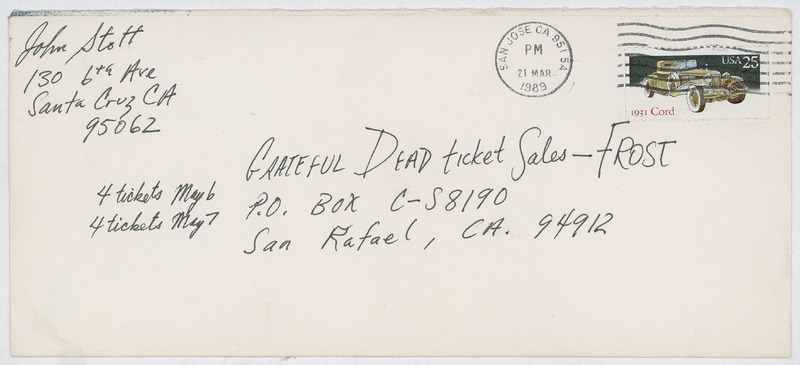 John Stott
130 6th Ave
Santa Cruz CA
95062
SAN JOSE CA 951 5A
PM
21 MAR
1989
USA 25
1931 Cord
GRATEFUL DEAD ticket Sales — FROST
P.O. BOX C-S8190
San Rafael, CA. 94912
4 tickets May 6
4 tickets May 7